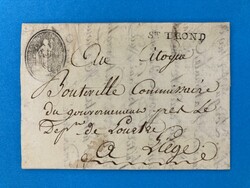 St TROND
Au Citoyen
Bouteville Commissaire
du gouvernement près le
Dépt. de Lourthe
a Liège